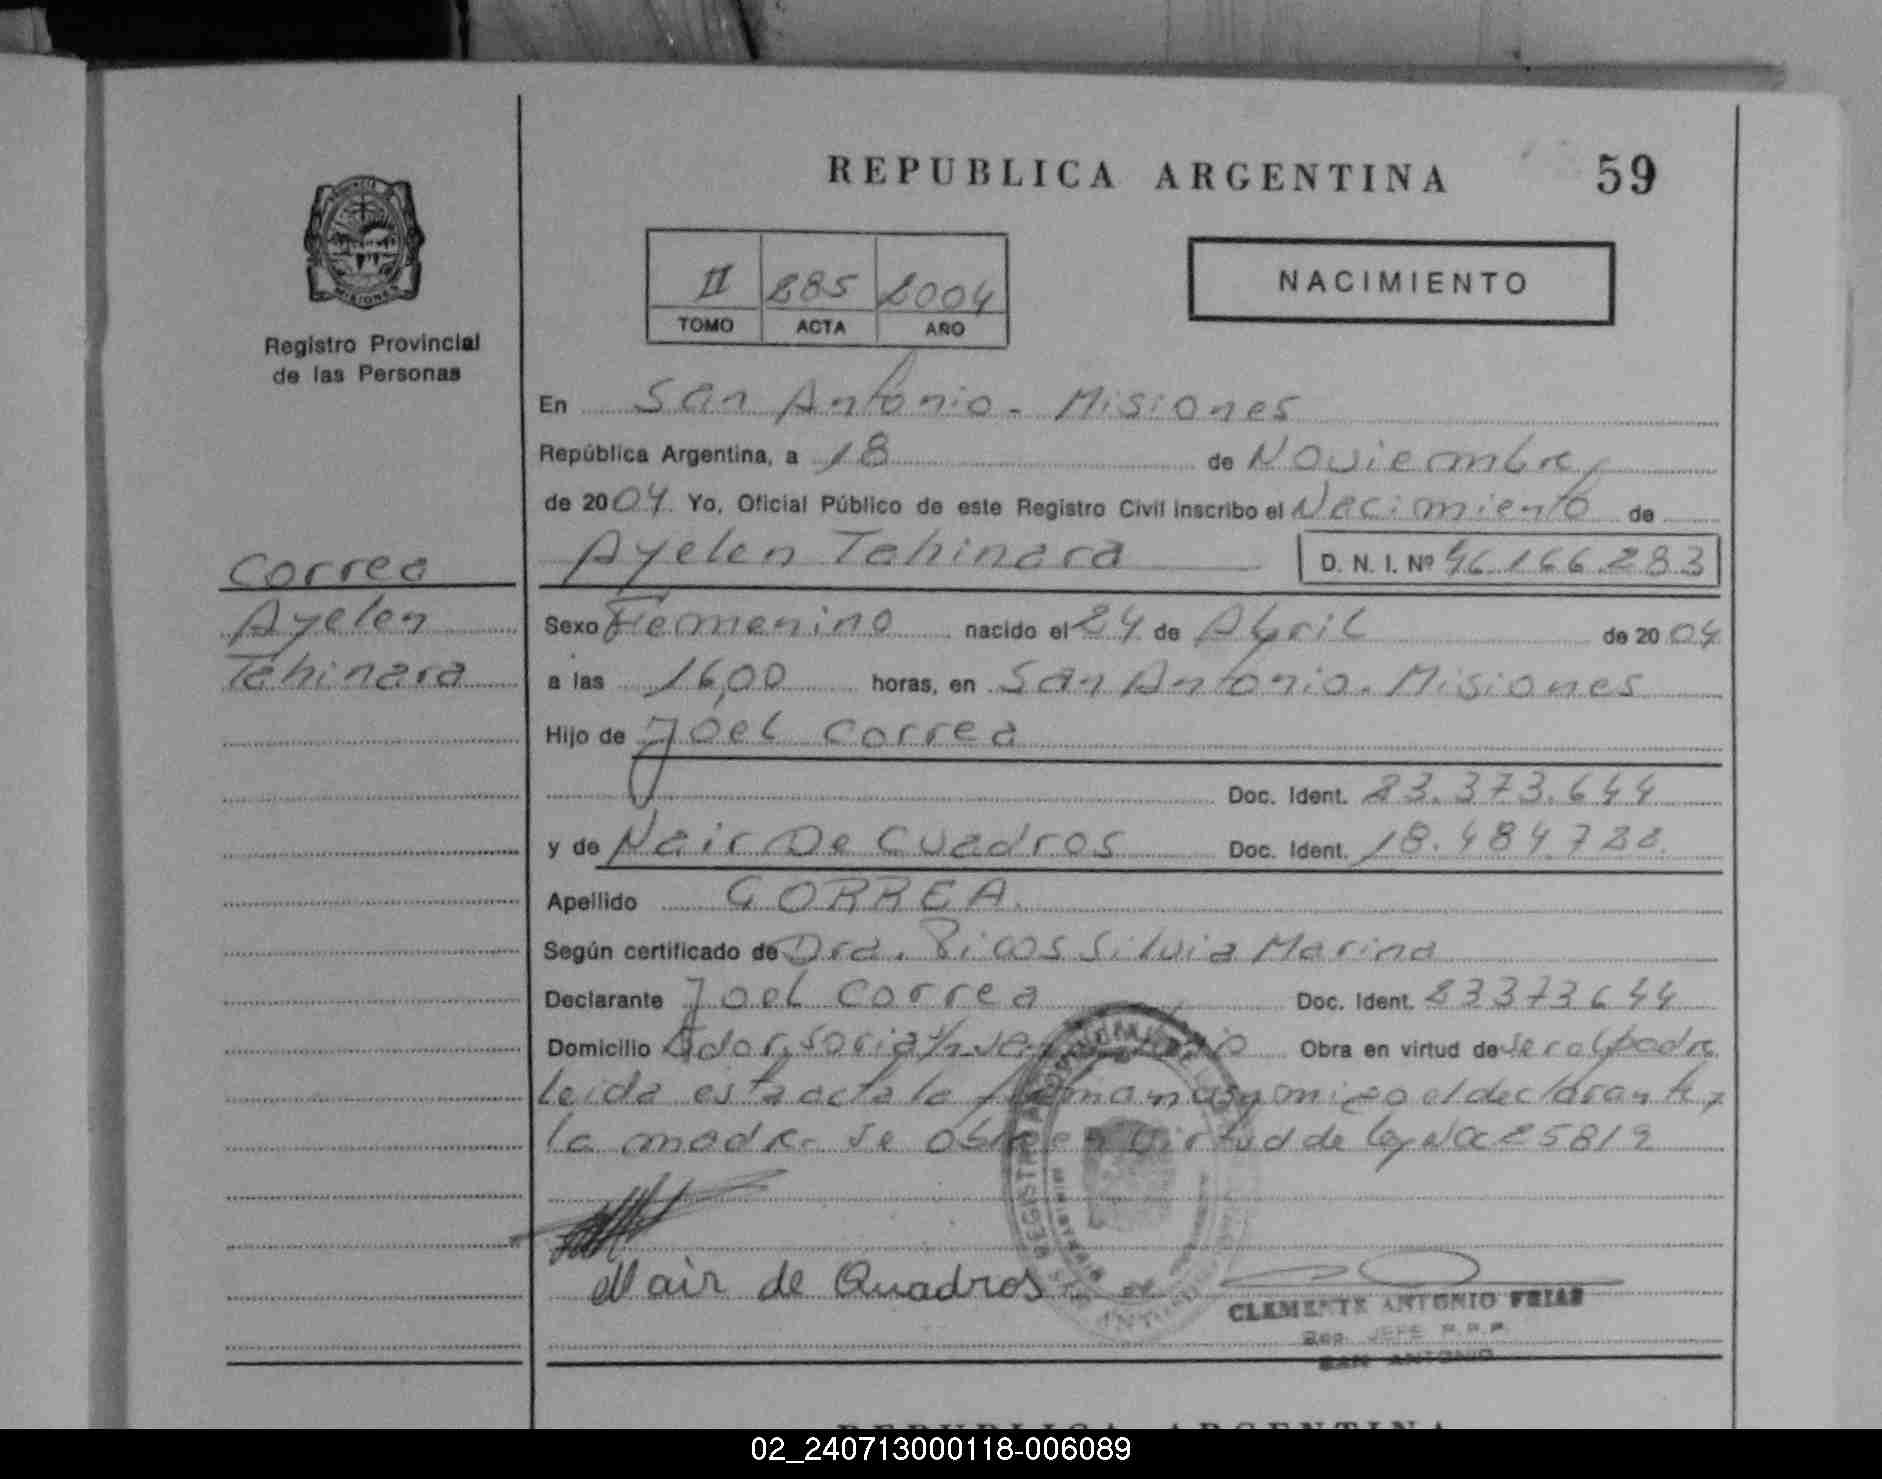 REPUBLICA ARGENTINA 59
NACIMIENTO
II 285 2004
TOMO ACTA AÑO
MISIONES
Registro Provincial
de las Personas
En San Antonio - Misiones
República Argentina, a 18 de Noviembre
de 2004 Yo, Oficial Público de este Registro Civil inscribo el Nacimiento de
Correa
Ayelen Tahinara D. N. I. Nº 46.166.283
Ayelen
Tahinara
Sexo Femenino nacido el 24 de Abril de 2004
a las 16,00 horas, en San Antonio. Misiones
Hijo de Joel Correa
Doc. Ident. 23.373.644
y de Nair De Cuadros Doc. Ident. 18.484.728
Apellido CORREA.
Según certificado de Dra. Silvia Marina
Declarante Joel Correa Doc. Ident. 23373644
Domicilio Obra en virtud de ser el padre
leida esta acta la firman conmigo el declarante y
la madre se obra en virtud de ley 25819
Nair de Quadros
CLEMENTE ANTONIO FRIAS
JEFE R.P.P.
SAN ANTONIO
REPUBLICA ARGENTINA
02_240713000118-006089